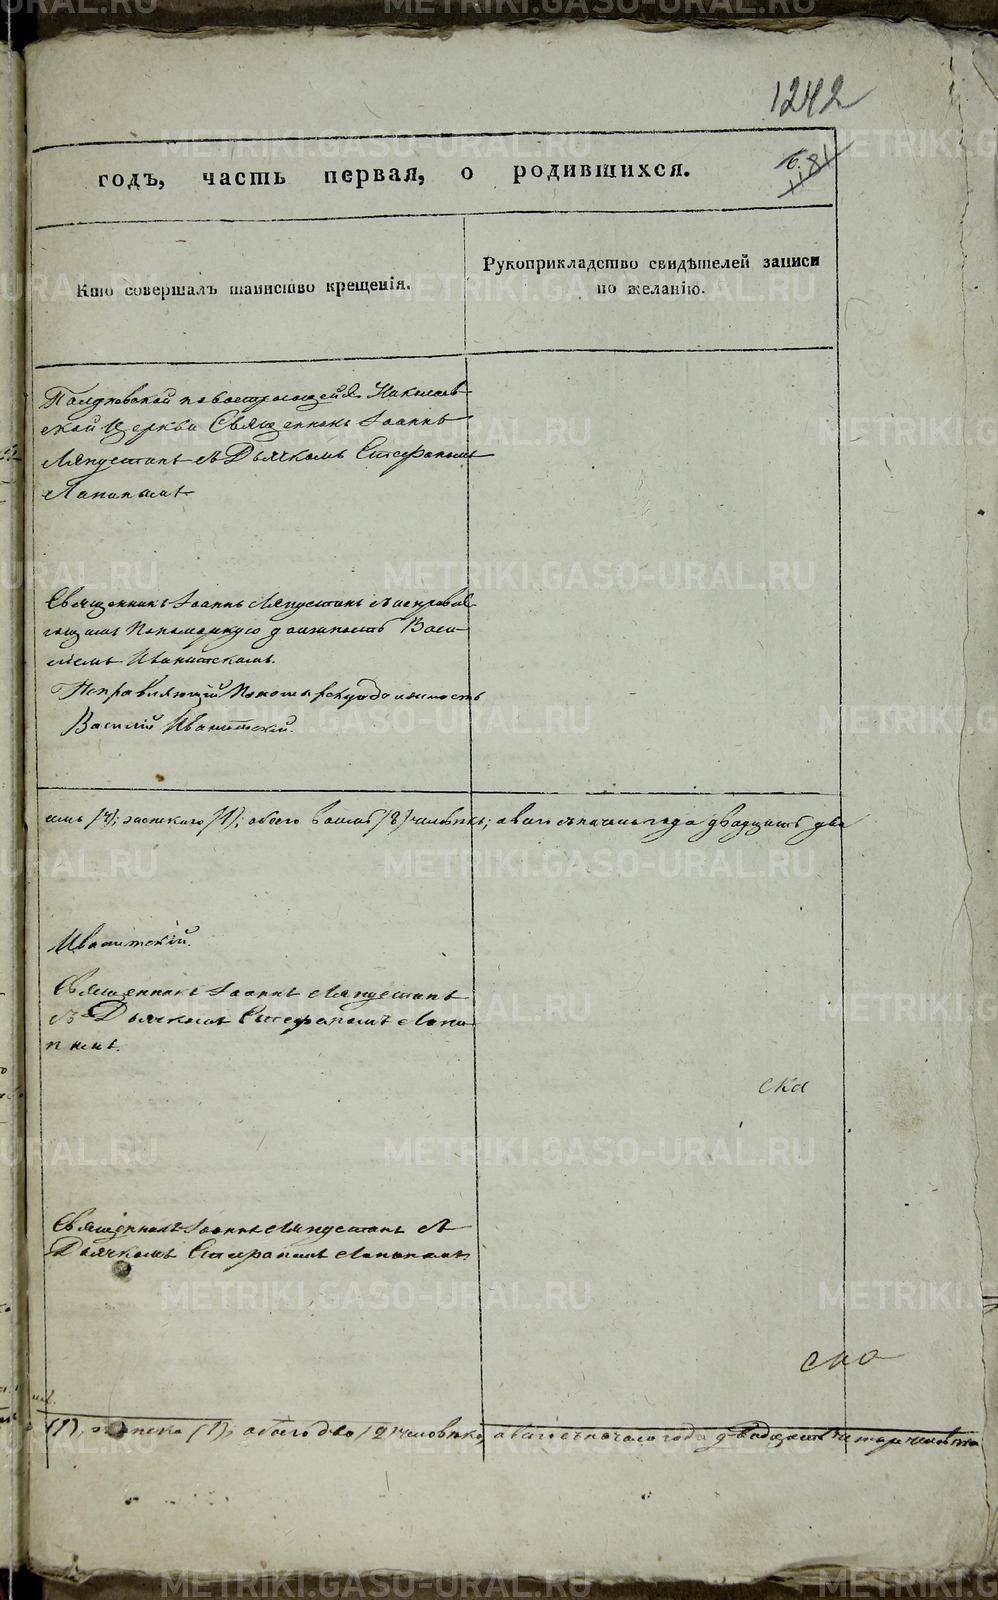 1242
годъ, часть первая, о родившихся.
Кто совершалъ таинство крещенія.
Рукоприкладство свидѣтелей записи
по желанію.
новостроющейся Николаев-
ской Церкви Священникъ Іоаннъ
Ляпустинъ съ Дьячкомъ Стефаномъ
Лапинымъ
Священникъ Іоаннъ Ляпустинъ съ исправля-
ющимъ Пономарскую должность Васи-
ліемъ Иваницкимъ.
Исправляющій Пономарскую должность
Василій Иваницкій.
(7); женскаго (1); обоего восемь (8) человѣкъ; а всего съ начала года двадцать два
Иваницкій.
Священникъ Іоаннъ Ляпустинъ
съ Дьячкомъ Стефаномъ Лапи-
нымъ.
ска
Священникъ Іоаннъ Ляпустинъ съ
Дьячкомъ Стефаномъ Лапинымъ.
ска
(1), женска (1), обоего два (2) человѣка, а всего съ начала года двадцать четыре человѣка
METRIKI.GASO-URAL.RU